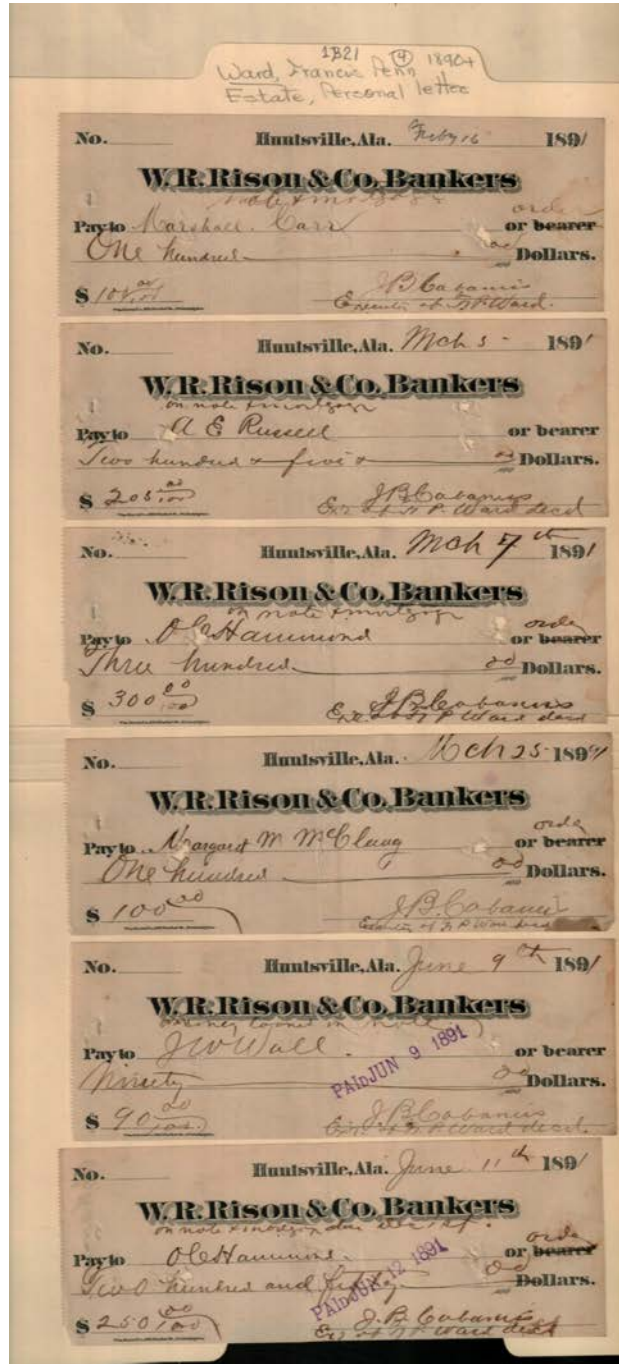 1B21 (4) 1890+
Ward, Francis Penn
Estate, Personal letter
No. Huntsville, Ala. Feby 16 1891
W. R. Rison & Co. Bankers
note & mortgage
order
Pay to Marshall Carr or bearer
One hundred 00 Dollars.
$ 100 00/100 J B Cabaniss
Executor of F P Ward.
No. Huntsville, Ala. Mch 5 - 1891
W. R. Rison & Co. Bankers
on note & mortgage
Pay to A E Russell or bearer
Two hundred & five 00 Dollars.
$ 205 00/100 J B Cabaniss
Exr of F P Ward decd
No. Huntsville, Ala. Mch 7th 1891
W. R. Rison & Co. Bankers
on note & mortgage
order
Pay to O C Hammond or bearer
Three hundred 00 Dollars.
$ 300 00/100 J B Cabaniss
Exr of F P Ward decd
No. Huntsville, Ala. Mch 25 - 1891
W. R. Rison & Co. Bankers
order
Pay to Margaret M McClung or bearer
One hundred 00 Dollars.
$ 100 00 J. B. Cabaniss
Executor of F P Ward decd
No. Huntsville, Ala. June 9th 1891
W. R. Rison & Co. Bankers
money loaned on note
Pay to J W Wall. or bearer
Ninety 00 Dollars.
PAID JUN 9 1891
$ 90 00/100 J. B. Cabaniss
Exr of F P Ward decd.
No. Huntsville, Ala. June 11th 1891
W. R. Rison & Co. Bankers
on note & mortgage due
order
Pay to O C Hammond. or bearer
Two hundred and fifty 00 Dollars.
PAID JUN 12 1891
$ 250 00/100 J. B. Cabaniss
Exr of F P Ward decd